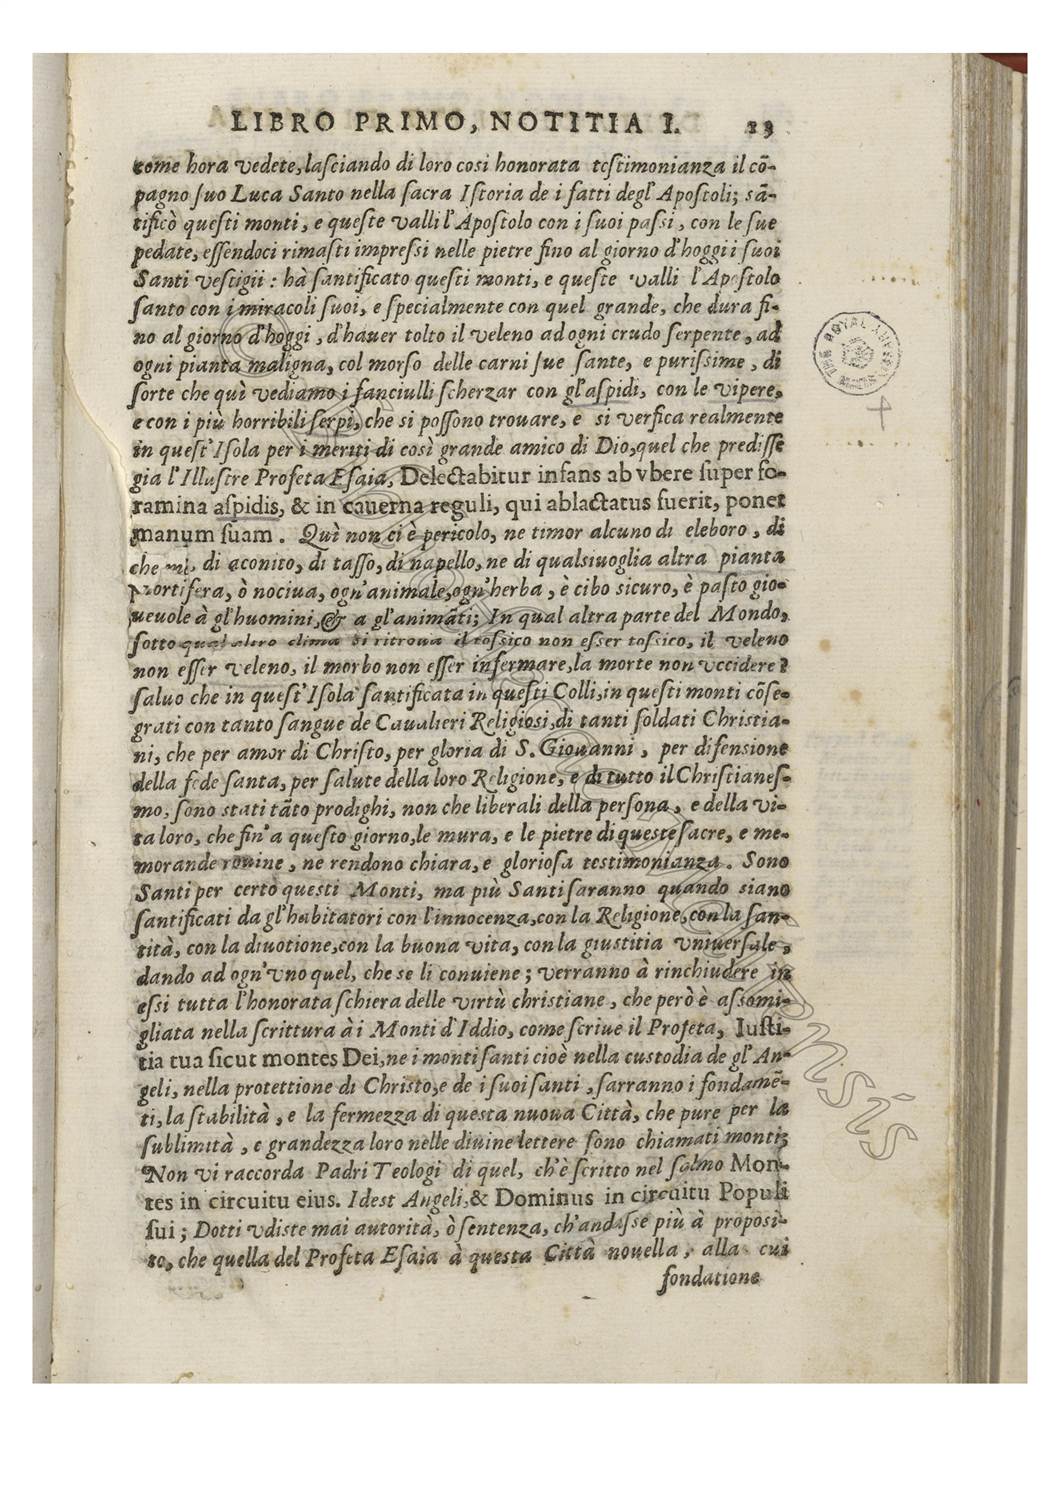 LIBRO PRIMO, NOTITIA I. 13
come hora vedete, lasciando di loro così honorata testimonianza il cō-
pagno suo Luca Santo nella sacra Istoria de i fatti degl'Apostoli; sā-
tificò questi monti, e queste valli l'Apostolo con i suoi passi, con le sue
pedate, essendoci rimasti impressi nelle pietre fino al giorno d'hoggi i suoi
Santi vestigii: hà santificato questi monti, e queste valli l'Apostolo
santo con i miracoli suoi, e specialmente con quel grande, che dura fi-
no al giorno d'hoggi, d'hauer tolto il veleno ad ogni crudo serpente, ad
ogni pianta maligna, col morso delle carni sue sante, e purissime, di
sorte che quì vediamo i fanciulli scherzar con gl'aspidi, con le vipere,
e con i più horribili serpi, che si possono trouare, e si verfica realmente
in quest'Isola per i meriti di così grande amico di Dio, quel che predisse
gia l'Illustre Profeta Esaia, Delectabitur infans ab vbere super fo-
ramina aspidis, & in cauerna reguli, qui ablactatus fuerit, ponet
manum suam. Quì non ci è pericolo, ne timor alcuno di eleboro, di
che di aconito, di tasso, di napello, ne di qualsiuoglia altra pianta
mortifera, ò nociua, ogn'animale, ogn'herba, è cibo sicuro, è pasto gio-
ueuole à gl'huomini, & a gl'animāti; In qual altra parte del Mondo,
sotto qual altro clima si ritroua il tossico non esser tossico, il veleno
non esser veleno, il morbo non esser infermare, la morte non vccidere?
saluo che in quest'Isola santificata in questi Colli, in questi monti cōse-
grati con tanto sangue de Caualieri Religiosi, di tanti soldati Christia-
ni, che per amor di Christo, per gloria di S. Giouanni, per difensione
della fede santa, per salute della loro Religione, e di tutto il Christianes-
mo, sono stati tāto prodighi, non che liberali della persona, e della vi-
ta loro, che fin'a questo giorno, le mura, e le pietre di queste sacre, e me-
morande rouine, ne rendono chiara, e gloriosa testimonianza. Sono
Santi per certo questi Monti, ma più Santi saranno quando siano
santificati da gl'habitatori con l'innocenza, con la Religione, con la san-
tità, con la diuotione, con la buona vita, con la giustitia vniuersale,
dando ad ogn'vno quel, che se li conuiene; verranno à rinchiudere in
essi tutta l'honorata schiera delle virtù christiane, che però è assomi-
gliata nella scrittura à i Monti d'Iddio, come scriue il Profeta, Iusti-
tia tua sicut montes Dei, ne i monti santi cioè nella custodia de gl'An-
geli, nella protettione di Christo, e de i suoi santi, sarranno i fondamē-
ti, la stabilità, e la fermezza di questa nuoua Città, che pure per la
sublimità, e grandezza loro nelle diuine lettere sono chiamati monti;
Non vi raccorda Padri Teologi di quel, ch'è scritto nel salmo Mon-
tes in circuitu eius. Idest Angeli, & Dominus in circuitu Populi
sui; Dotti vdiste mai autorità, ò sentenza, ch'andasse più à proposi-
to, che quella del Profeta Esaia à questa Città nouella, alla cui
fondatione